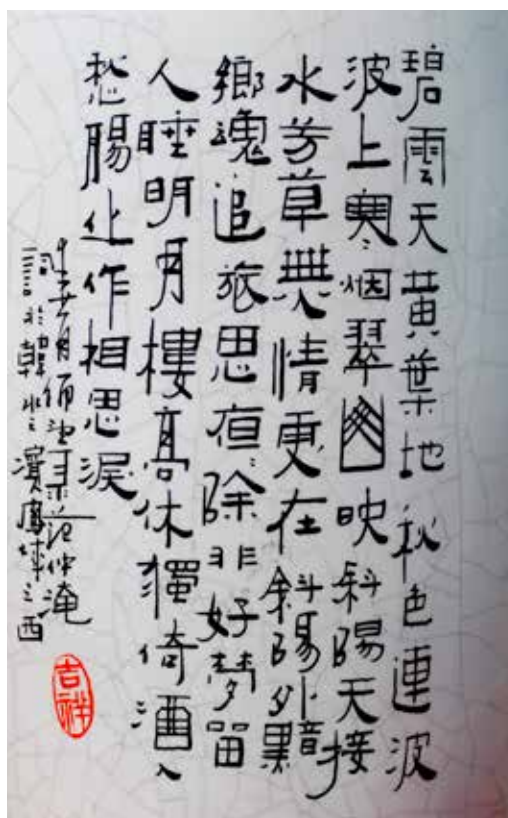 碧雲天黃葉地秋色連波
波上寒烟翠山映斜陽天接
水芳草無情更在斜陽外黯
鄉魂追旅思夜〻除非好夢留
人睡明月樓高休獨倚酒入
愁腸化作相思淚
范仲淹
詞於韓水之濱鳳城之西
吉祥